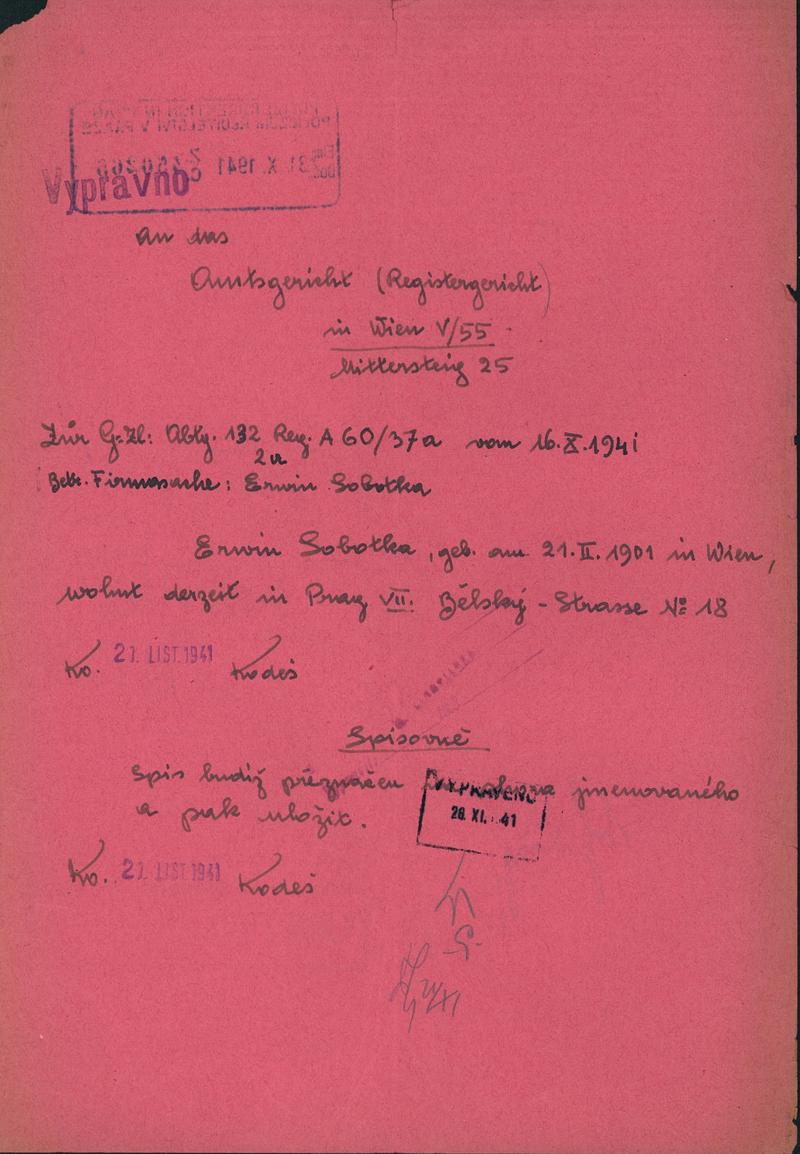 POLICEJNÍ ŘEDITELSTVÍ V PRAZE
31. X. 1941
Vypravno
An das
Amtsgericht (Registergericht)
in Wien V/55
Mittersteig 25
Zur G=Zl: Abtg. 132 Reg. A 60/37a vom 16.X.1941
2a
Betr. Firmasache: Erwin Sobotka
Erwin Sobotka, geb. am 21.II.1901 in Wien,
wohnt derzeit in Prag VII. Bělský-Strasse № 18
Ko. 21. LIST. 1941 Kodeš
Spisovně
Spis budiž přeznačen jmenovaného
a pak uložit.
VYPRAVENO
28. XI. 41
Ko. 21. LIST. 1941 Kodeš